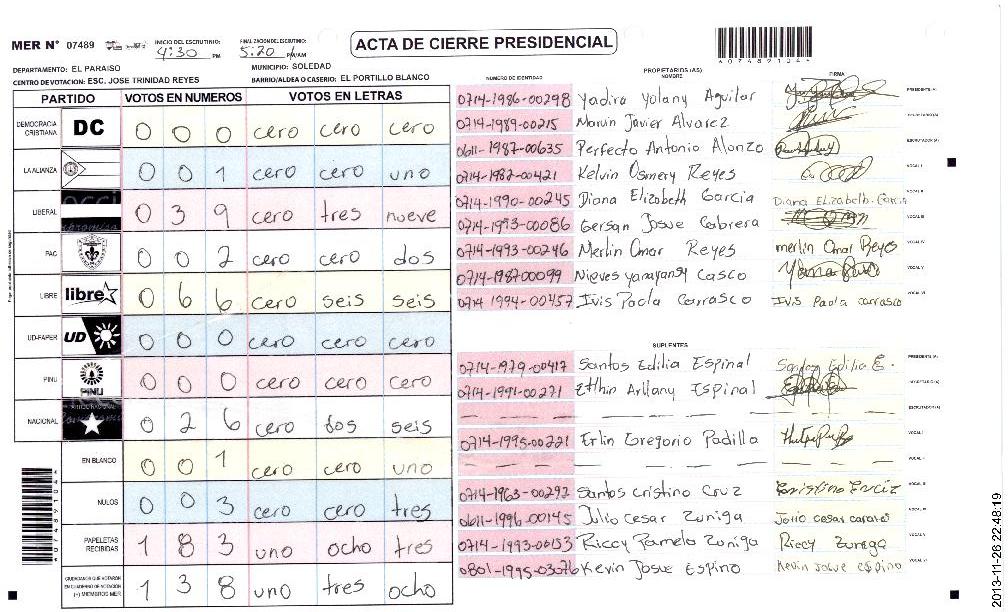 MER N° 07489 INICIO DEL ESCRUTINIO: 4:30 PM FINALIZACION DEL ESCRUTINIO: 5:20 PM/AM
ACTA DE CIERRE PRESIDENCIAL
DEPARTAMENTO: EL PARAISO MUNICIPIO: SOLEDAD
CENTRO DE VOTACION: ESC. JOSE TRINIDAD REYES BARRIO/ALDEA O CASERIO: EL PORTILLO BLANCO
PARTIDO VOTOS EN NUMEROS VOTOS EN LETRAS
DEMOCRACIA CRISTIANA DC 0 0 0 cero cero cero
LA ALIANZA 0 0 1 cero cero uno
LIBERAL 0 3 9 cero tres nueve
PAC 0 0 2 cero cero dos
LIBRE libre 0 6 6 cero seis seis
UD-FAPER UD 0 0 0 cero cero cero
PINU PINU 0 0 0 cero cero cero
NACIONAL 0 2 6 cero dos seis
EN BLANCO 0 0 1 cero cero uno
NULOS 0 0 3 cero cero tres
PAPELETAS RECIBIDAS 1 8 3 uno ocho tres
CIUDADANOS QUE VOTARON EN CUADERNO DE VOTACION (+) MIEMBROS MER 1 3 8 uno tres ocho
PROPIETARIOS (AS)
NUMERO DE IDENTIDAD NOMBRE FIRMA
0714-1986-00298 Yadira Yolany Aguilar PRESIDENTE (A)
0714-1989-00215 Marvin Javier Alvarez SECRETARIO (A)
0611-1987-00635 Perfecto Antonio Alonzo ESCRUTADOR (A)
0714-1982-00421 Kelvin Osmery Reyes VOCAL I
0714-1990-00245 Diana Elizabeth Garcia Diana Elizabeth Garcia VOCAL II
0714-1993-00086 Gersan Josue Cabrera VOCAL III
0714-1993-00246 Merlin Omar Reyes merlin Omar Reyes VOCAL IV
0714-1987-00099 Nieves yarayansy Casco VOCAL V
0714 1994-00457 Ivis Paola Carrasco Ivis Paola carrasco VOCAL VI
SUPLENTES
0714-1979-00417 Santos Edilia Espinal Santos Edilia E. PRESIDENTE (A)
0714-1991-00271 Ethin Arllany Espinal SECRETARIO (A)
ESCRUTADOR (A)
0714-1995-00221 Erlin Gregorio Padilla VOCAL I
VOCAL II
0714-1963-00292 Santos cristino Cruz VOCAL III
0611-1996-00145 Julio Cesar Zuniga Julio cesar VOCAL IV
0714-1993-00153 Riccy Pamela Zuniga Riccy Zuniga VOCAL V
0801-1995-03076 Kevin Josue Espino Kevin Josue Espino VOCAL VI
2013-11-26 22:48:19